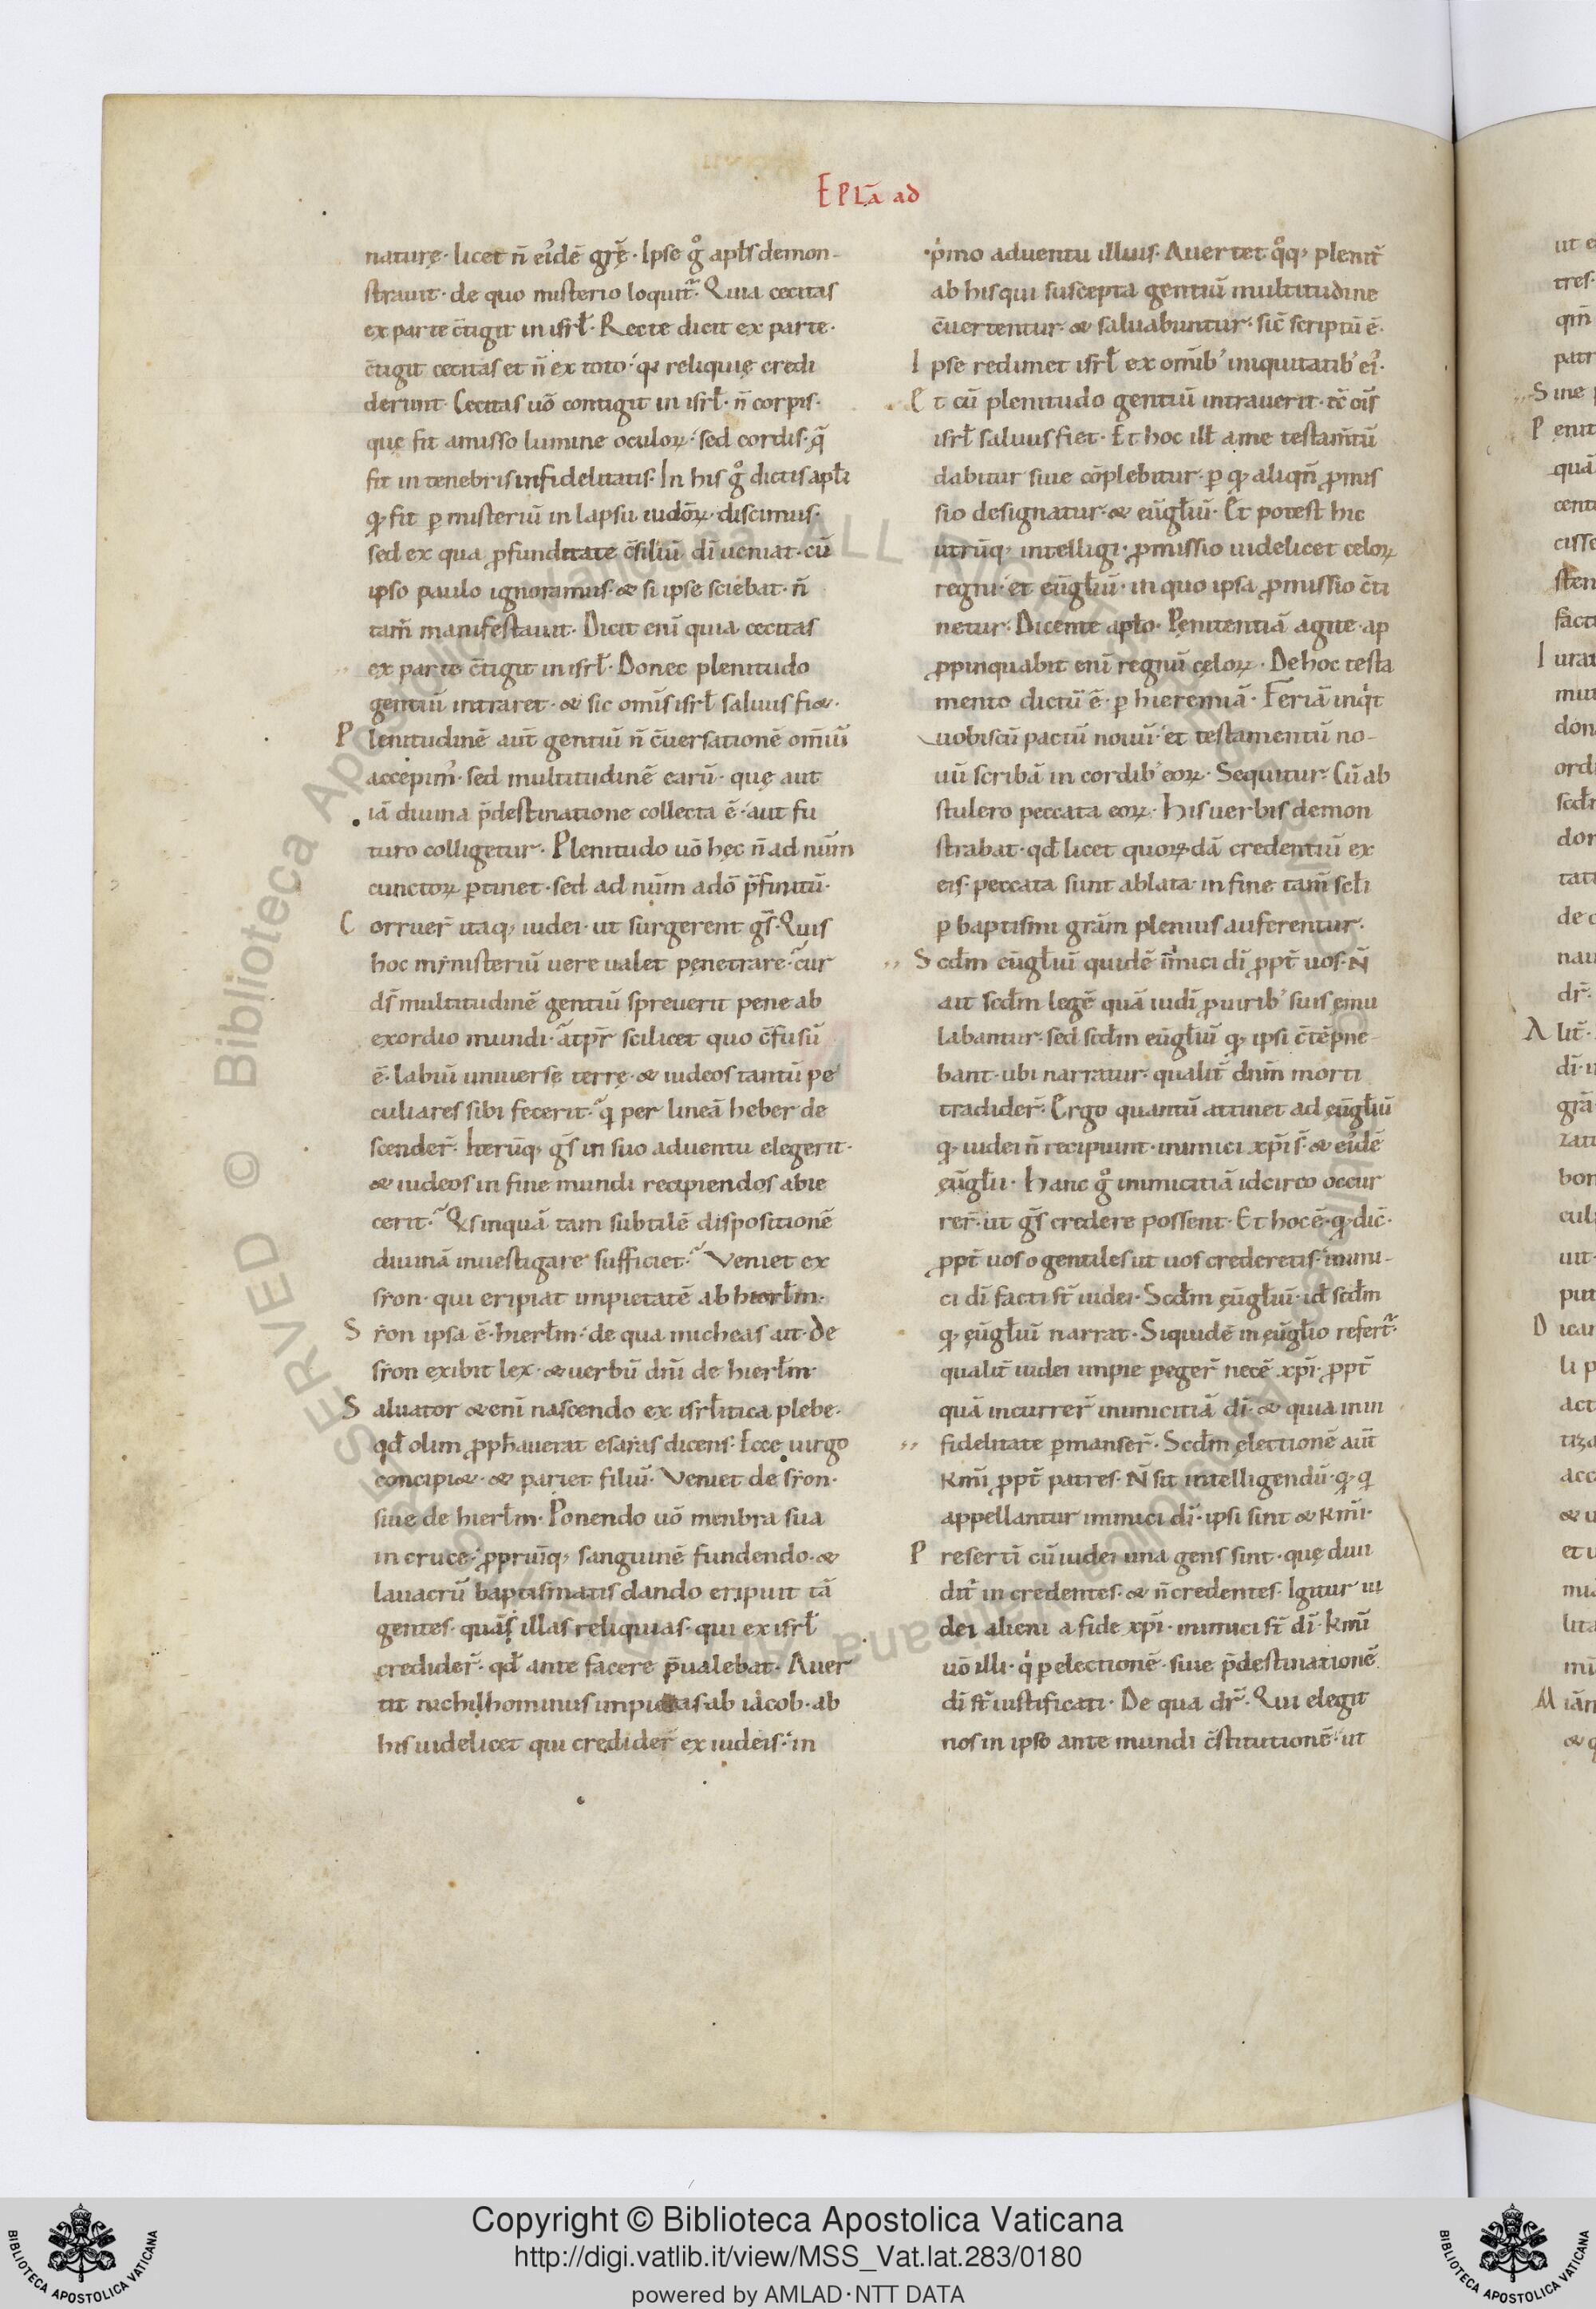 EPLA̅ ad
naturę· licet n̅ eiͥdē gr̅ę· Ipse gͦ apl̅s demon-
strauit· de quo misterio loquit᷑· Quia cecitas
ex parte c̅tigit in isrl̅· Recte dicit ex parte·
c̅tigit cecitas et n̅ ex toto· qꝫ reliquię credi
derunt· Cecitas uō contigit in isrl̅· n̅ corpis·
quę fit amisso lumine oculoꝝ· sed cordis· q̅
fit in tenebris infidelitatis· In his gͦ dictis apl̅i
qꝫ fit ꝑ misteriū in lapsu iudōꝝ discimus·
sed ex qua ꝓfunditate c̅siliū dī ueniat· cū
ipso paulo ignoramus· & si ipse sciebat· n̅
tam̅ manifestauit· Dicit enī quia cecitas
ex parte c̅tigit in isrl̅· Donec plenitudo
gentiū intraret· & sic om̅s isrl̅ saluus fi&·
Plenitudinē aut̅ gentiū n̅ c̅uersationē om̅iū
accepim᷒· sed multitudinē earū· quę aut
iā diuina p̅destinatione collecta ē· aut fu
turo colligetur· Plenitudo uō hęc n̅ ad num̅
cunctoꝝ ꝑtinet· sed ad num̅ adō p̅finitū·
Corruer̅ itaqꝫ iudei· ut surgerent gs̅· Quis
hoc ministeriū uere ualet penetrare· cur
ds̅ multitudinē gentiū spreuerit pene ab
exordio mundi· a tp̅r scilicet quo c̅fusū
ē· labiū uniuersę terrę· & iudeos tantū pe
culiares sibi fecerit· q per lineā heber de
scender̅· Iterūqꝫ gs̅ in suo aduentu elegerit·
& iudeos in fine mundi recipiendos abie
cerit· Q's inquā tam subtilē dispositionē
diuinā inuestigare sufficiet· Veniet ex
sẏon· qui eripiat impietatē ab hierl̅m·
Sẏon ipsa ē· hierl̅m· de qua micheas ait· De
sẏon exibit lex· & uerbū dnī de hierl̅m·
Saluator &enī nascendo ex isrl̅itica plebe·
qd̅ olim ꝓph̅auerat esaias dicens· Ecce uirgo
concipi&· & pariet filiū· Veniet de sẏon·
siue de hierl̅m· Ponendo uō menbra sua
in cruce· ꝓpriūqꝫ sanguinē fundendo· &
lauacrū baptismatis dando eripuit tā
gentes· quā illas reliquias· qui ex isrl̅
credider̅· qd̅ ante facere p̅ualebat· Auer
tit nichilhominus impietas ab iacob· ab
his uidelicet qui credider̅ ex iudeis· in
p'mo aduentu illius· Auertet qͦqꝫ plenit᷑
ab his qui suscepta gentiū multitudine
c̅uertentur· & saluabuntur· sic̅ scriptū ē·
Ipse redimet isrl̅ ex omīb᷒ iniquitatib᷒ ei᷒·
Et cū plenitudo gentiū intrauerit· tc̅ ois̅
isrl̅ saluus fiet· Et hoc ill̅ a me testam̅tū
dabitur siue cōplebitur· ꝑ qꝫ aliqn̅ ꝓmis
sio designatur· & eūgl̅iū· Et potest hic
utrūqꝫ intelligi· ꝓmissio uidelicet celoꝝ
regni· et eūgl̅iū· in quo ipsa ꝓmissio c̅ti
netur· Dicente apl̅o· Penitentiā agite· ap
ꝓpinquabit enī regnū cęloꝝ· De hoc testa
mento dictū ē· ꝑ hieremiā· Feriā inq't
uobiscū pactū nouū· et testamentū no-
uū scribā in cordib᷒ eoꝝ· Sequitur· Cū ab
stulero peccata eoꝝ· His uerbis demon
strabat· qd̅ licet quoꝝdā credentiū ex
eis· peccata sunt ablata· in fine tam̅ scl̅i
ꝑ baptismi gram̅ plenius auferentur·
Scdm̅ eūgl̅iū quidē inimici dī ꝓpt̅ uos· N̅
ait scdm̅ legē quā iudī ꝓ uirib᷒ suis ęmu
labantur· sed scdm̅ eūgl̅iū qꝫ ipsi c̅tēpne
bant· ubi narratur· qualit̅ dnm̅ morti
tradider̅· Ergo quantū attinet ad ęūgl̅iū
qꝫ iudei n̅ recipiunt· inimici xpī s̅· & eiͥdē
ęūgl̅ii· Hanc gͦ inimicitiā idcirco occur
rer̅· ut gs̅ credere possent· Et hoc ē· qꝫ dic̅·
ꝓpt̅ uos o gentiles ut uos crederetis· inimi-
ci dī facti st̅ iudei· Scdm̅ ęūgl̅iū· id̅ scdm̅
qꝫ ęūgl̅iū narrat· Siquidē in ęūgl̅io refert᷑·
qualit̅ iudei impie peger̅ necē xpī· ꝓpt̅
quā incurrer̅ inimicitiā dī· & quia in in
fidelitate ꝑmanser̅· Scdm̅ electionē aut̅
Kmī ꝓpt̅ patres· N̅ sit intelligendū· qꝫ q
appellantur inimici dī· ipsi sint & Kmī·
Presertī cū iudei una gens sint· quę diui
dit᷑ in credentes· & n̅ credentes· Igitur iu
dei alieni a fide xpī· inimici st̅ dī· Kmī
uō illi· q' ꝑ electionē· siue p̅destinationē
dī st̅ iustificati· De qua dr̅· Qui elegit
nos in ipso ante mundi c̅stitutionē· ut
Copyright © Biblioteca Apostolica Vaticana
http://digi.vatlib.it/view/MSS_Vat.lat.283/0180
powered by AMLAD·NTT DATA